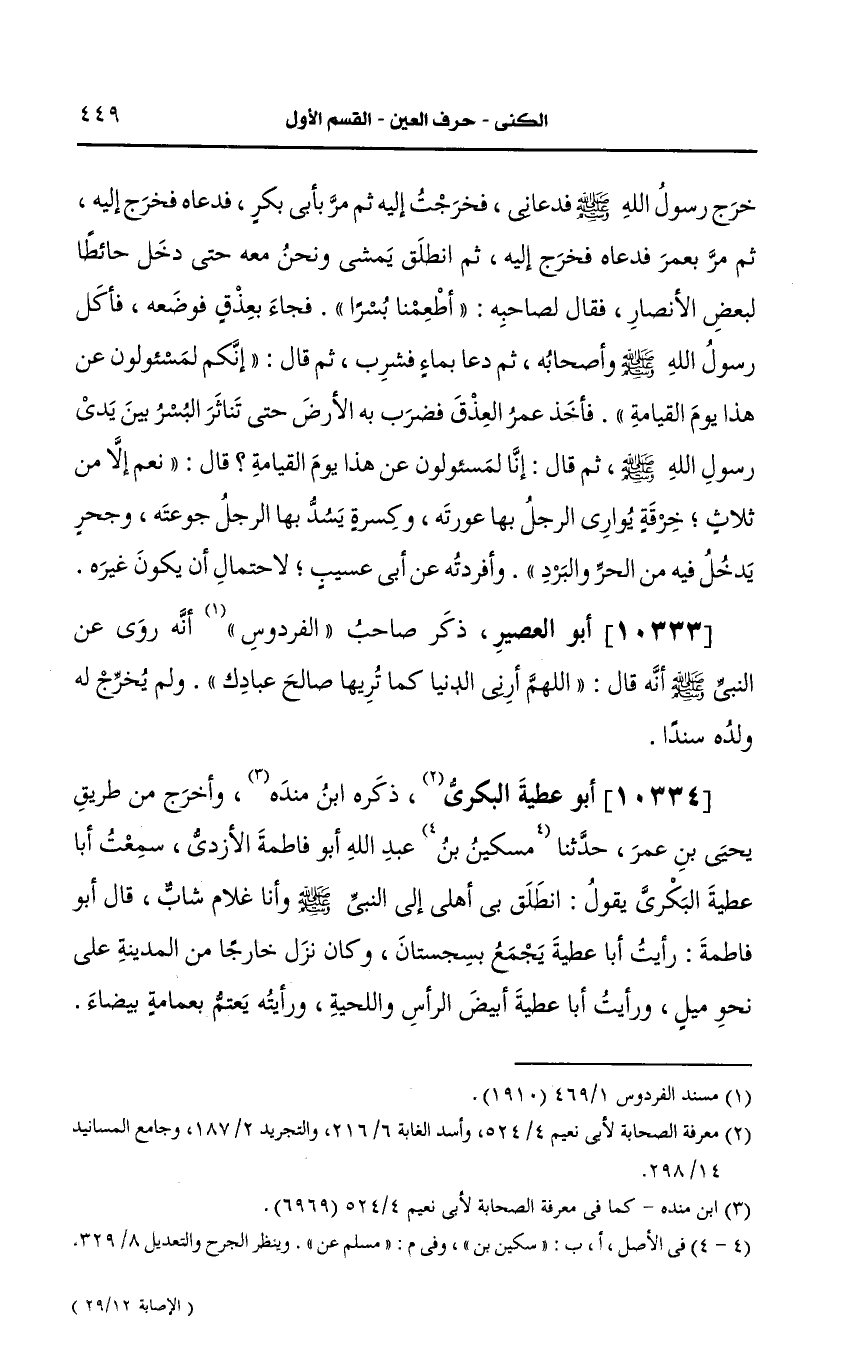 الكنى - حرف العين - القسم الأول ٤٤٩
خرَج رسولُ اللهِ ﷺ فدعانِى ، فخرَجْتُ إليه ثم مرَّ بأبى بكرٍ ، فدعاه فخرَج إليه ،
ثم مرَّ بعمرَ فدعاه فخرَج إليه ، ثم انطلَق يَمشى ونحنُ معه حتى دخَل حائطًا
لبعضِ الأنصارِ ، فقال لصاحبِه : « أطْعِمْنا بُسْرًا » . فجاءَ بعِذْقٍ فوضَعه ، فأكَل
رسولُ اللهِ ﷺ وأصحابُه ، ثم دعا بماءٍ فشرِب ، ثم قال : « إنَّكم لمَسْئولون عن
هذا يومَ القيامةِ » . فأخَذ عمرُ العِذْقَ فضرَب به الأرضَ حتى تَناثَرَ البُسْرُ بينَ يَدىْ
رسولِ اللهِ ﷺ ، ثم قال : إنَّا لمَسئولون عن هذا يومَ القيامةِ ؟ قال : « نعم إلَّا من
ثلاثٍ ؛ خِرْقَةٍ يُوارِى الرجلُ بها عورتَه ، وكِسرةٍ يَسُدُّ بها الرجلُ جوعتَه ، وجحرٍ
يَدخُلُ فيه من الحرِّ والبَرْدِ » . وأفردتُه عن أبى عسيبٍ ؛ لاحتمالِ أن يكونَ غيرَه .
[١٠٣٣٣] أبو العصيرِ ، ذكَر صاحبُ « الفردوسِ »(١) أنَّه روَى عن
النبىِّ ﷺ أنَّه قال : « اللهمَّ أرِنِى الدنيا كما تُرِيها صالحَ عبادِك » . ولم يُخرِّجْ له
ولدُه سندًا .
[١٠٣٣٤] أبو عطيةَ البكرىُّ(٢) ، ذكَره ابنُ مندَه(٣) ، وأخرَج من طريقِ
يحيَى بنِ عمرَ ، حدَّثنا (٤مسكينُ بنُ٤) عبدِ اللهِ أبو فاطمةَ الأزدىُّ ، سمِعْتُ أبا
عطيةَ البَكْرىَّ يقولُ : انطَلَق بى أهلى إلى النبىِّ ﷺ وأنا غلام شابٌّ ، قال أبو
فاطمةَ : رأيتُ أبا عطيةَ يَجْمَعُ بسِجستانَ ، وكان نزَل خارجًا من المدينةِ على
نحوِ ميلٍ ، ورأيتُ أبا عطيةَ أبيضَ الرأسِ واللحيةِ ، ورأيتُه يَعتمُّ بعمامةٍ بيضاءَ .
(١) مسند الفردوس ٤٦٩/١ (١٩١٠) .
(٢) معرفة الصحابة لأبى نعيم ٥٢٤/٤، وأسد الغابة ٢١٦/٦، والتجريد ١٨٧/٢، وجامع المسانيد
٢٩٨/١٤.
(٣) ابن منده - كما فى معرفة الصحابة لأبى نعيم ٥٢٤/٤ (٦٩٦٩) .
(٤ - ٤) فى الأصل ، أ ، ب : « سكين بن » ، وفى م : « مسلم عن » . وينظر الجرح والتعديل ٣٢٩/٨.
( الإصابة ٢٩/١٢ )